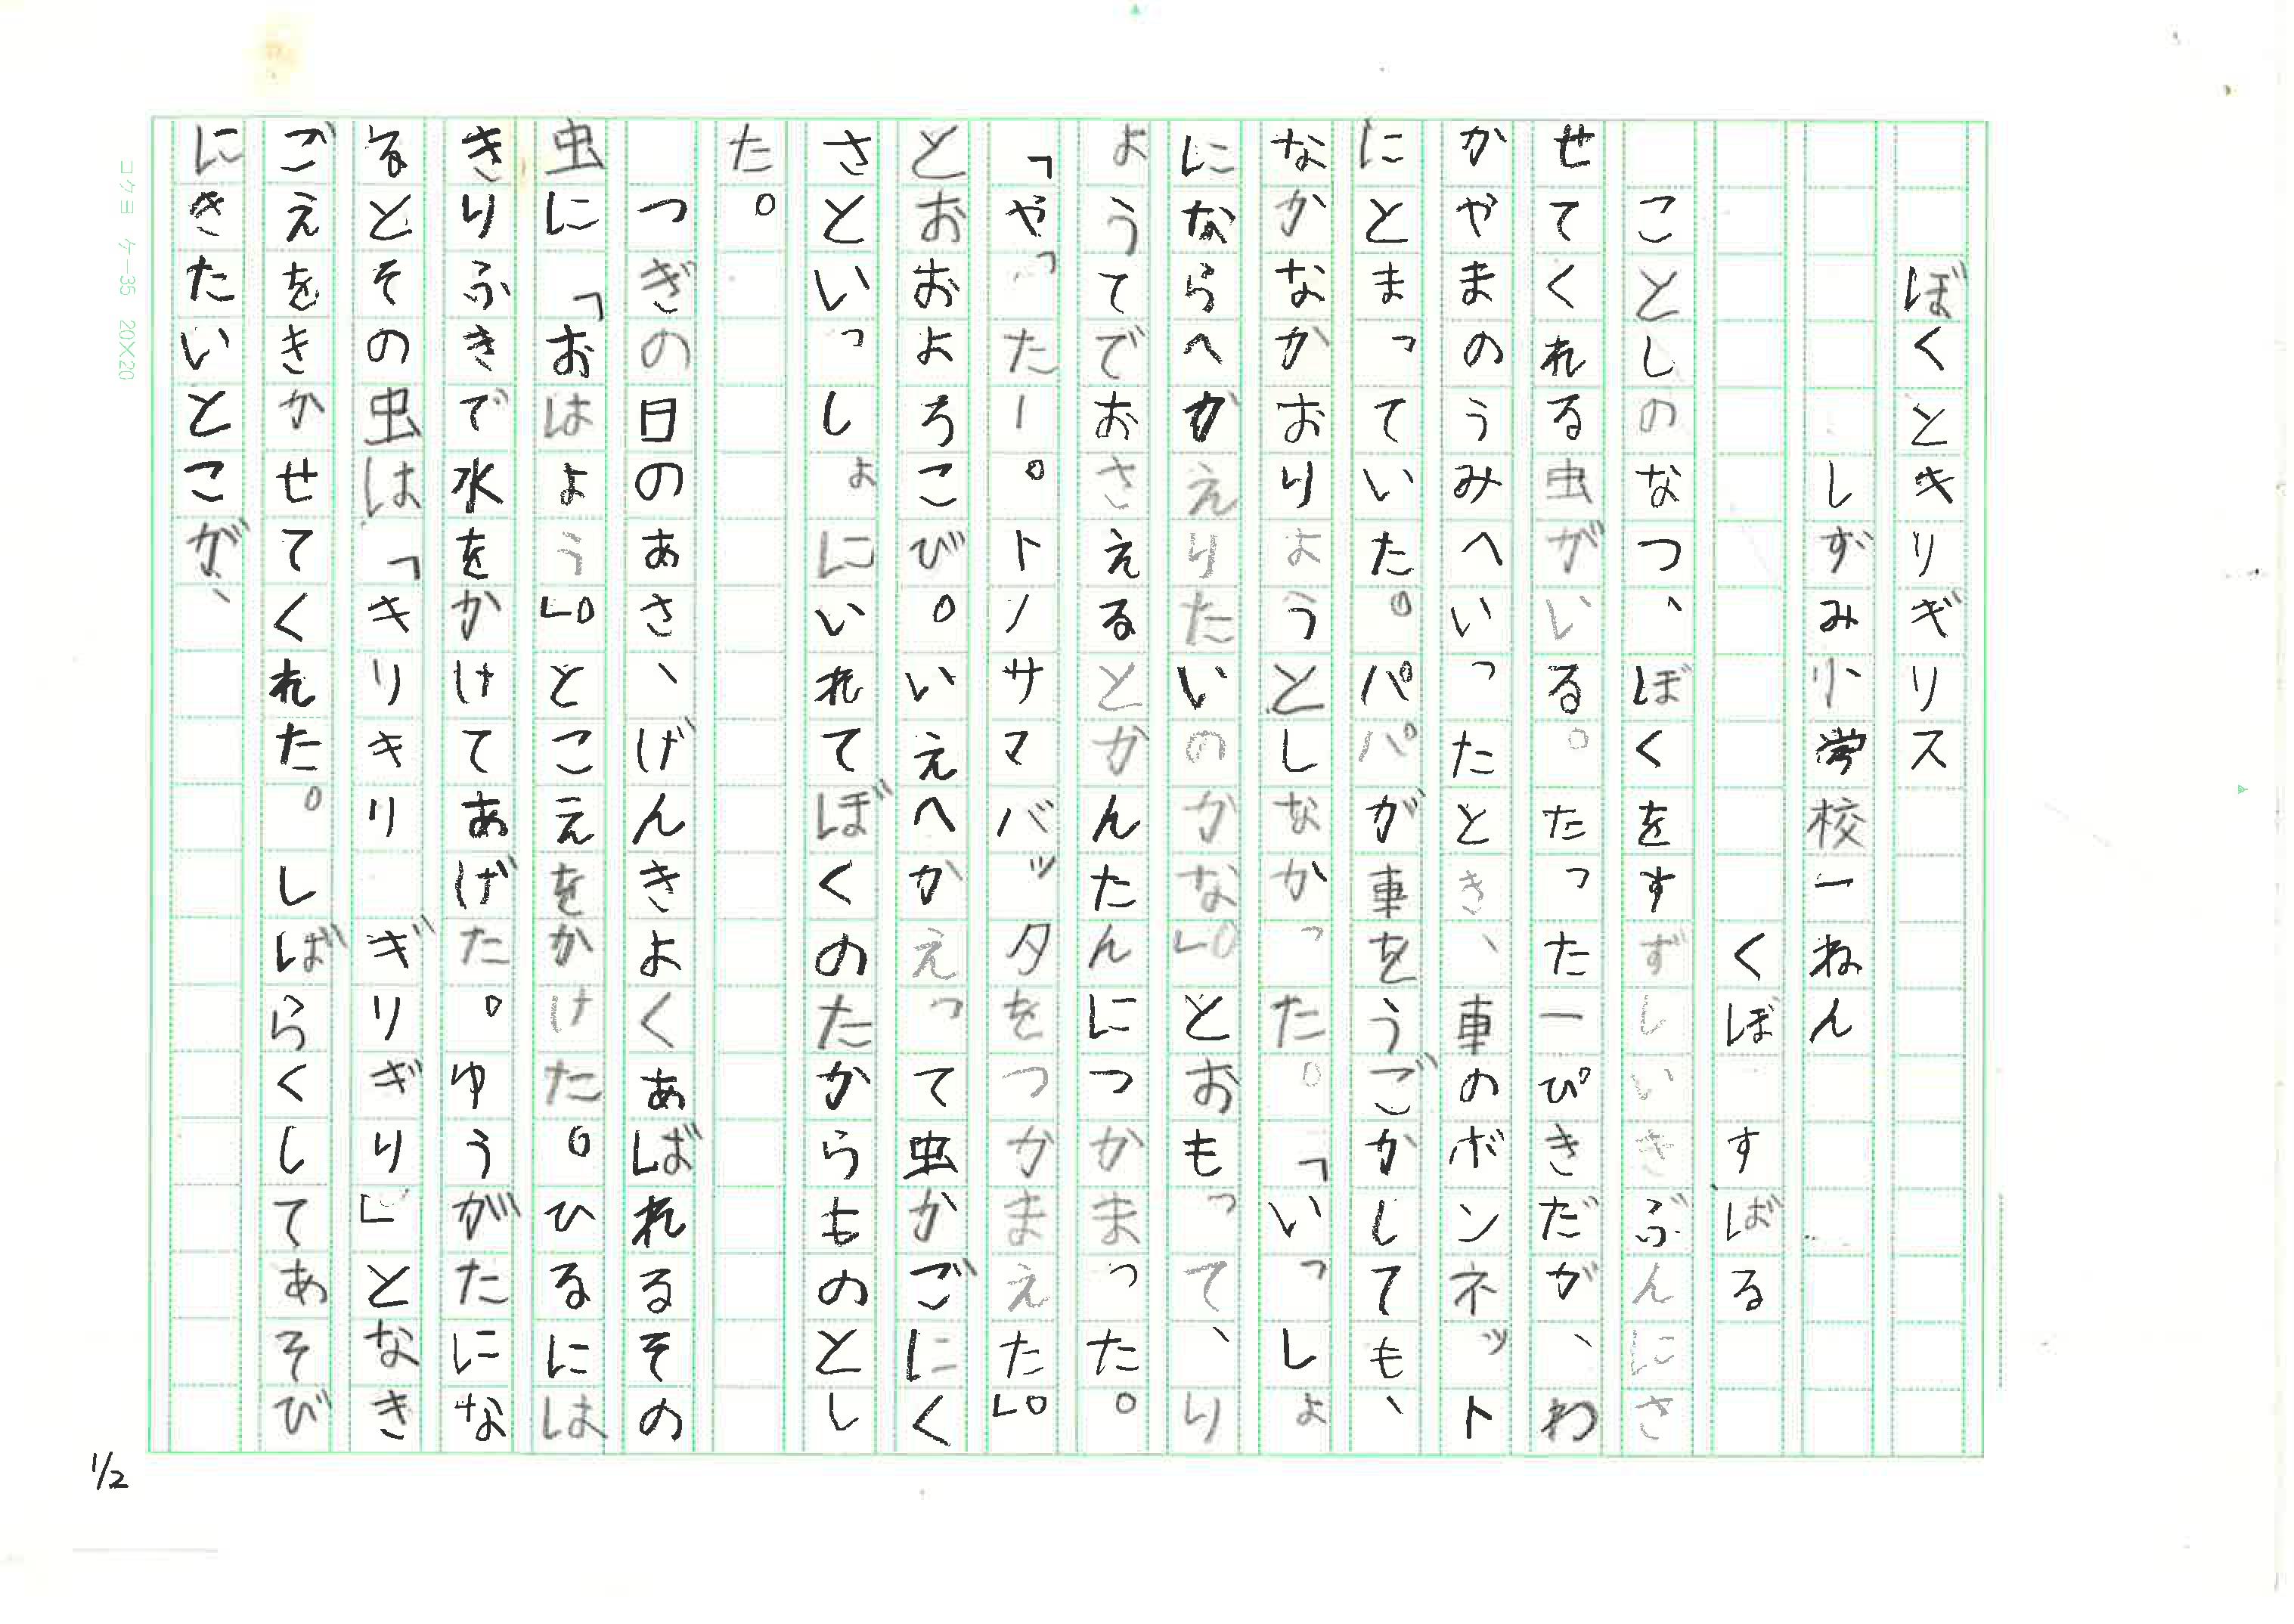 ぼくとキリギリス
しずみ小学校一ねん
くぼ　すばる
ことしのなつ、ぼくをすずしいきぶんにさ
せてくれる虫がいる。たった一ぴきだが、わ
かやまのうみへいったとき、車のボンネット
にとまっていた。パパが車をうごかしても、
なかなかおりようとしなかった。「いっしょ
にならへかえりたいのかな」。とおもって、り
ようてでおさえるとかんたんにつかまった。
「やったー。トノサマバッタをつかまえた」。
とおおよろこび。いえへかえって虫かごにく
さといっしょにいれてぼくのたからものとし
た。
つぎの日のあさ、げんきよくあばれるその
虫に「おはよう」。とこえをかけた。ひるには
きりふきで水をかけてあげた。ゆうがたにな
るとその虫は「キリキリ　ギリギリ」となき
ごえをきかせてくれた。しばらくしてあそび
にきたいとこが、
コクヨ　ケー35　20×20
1/2